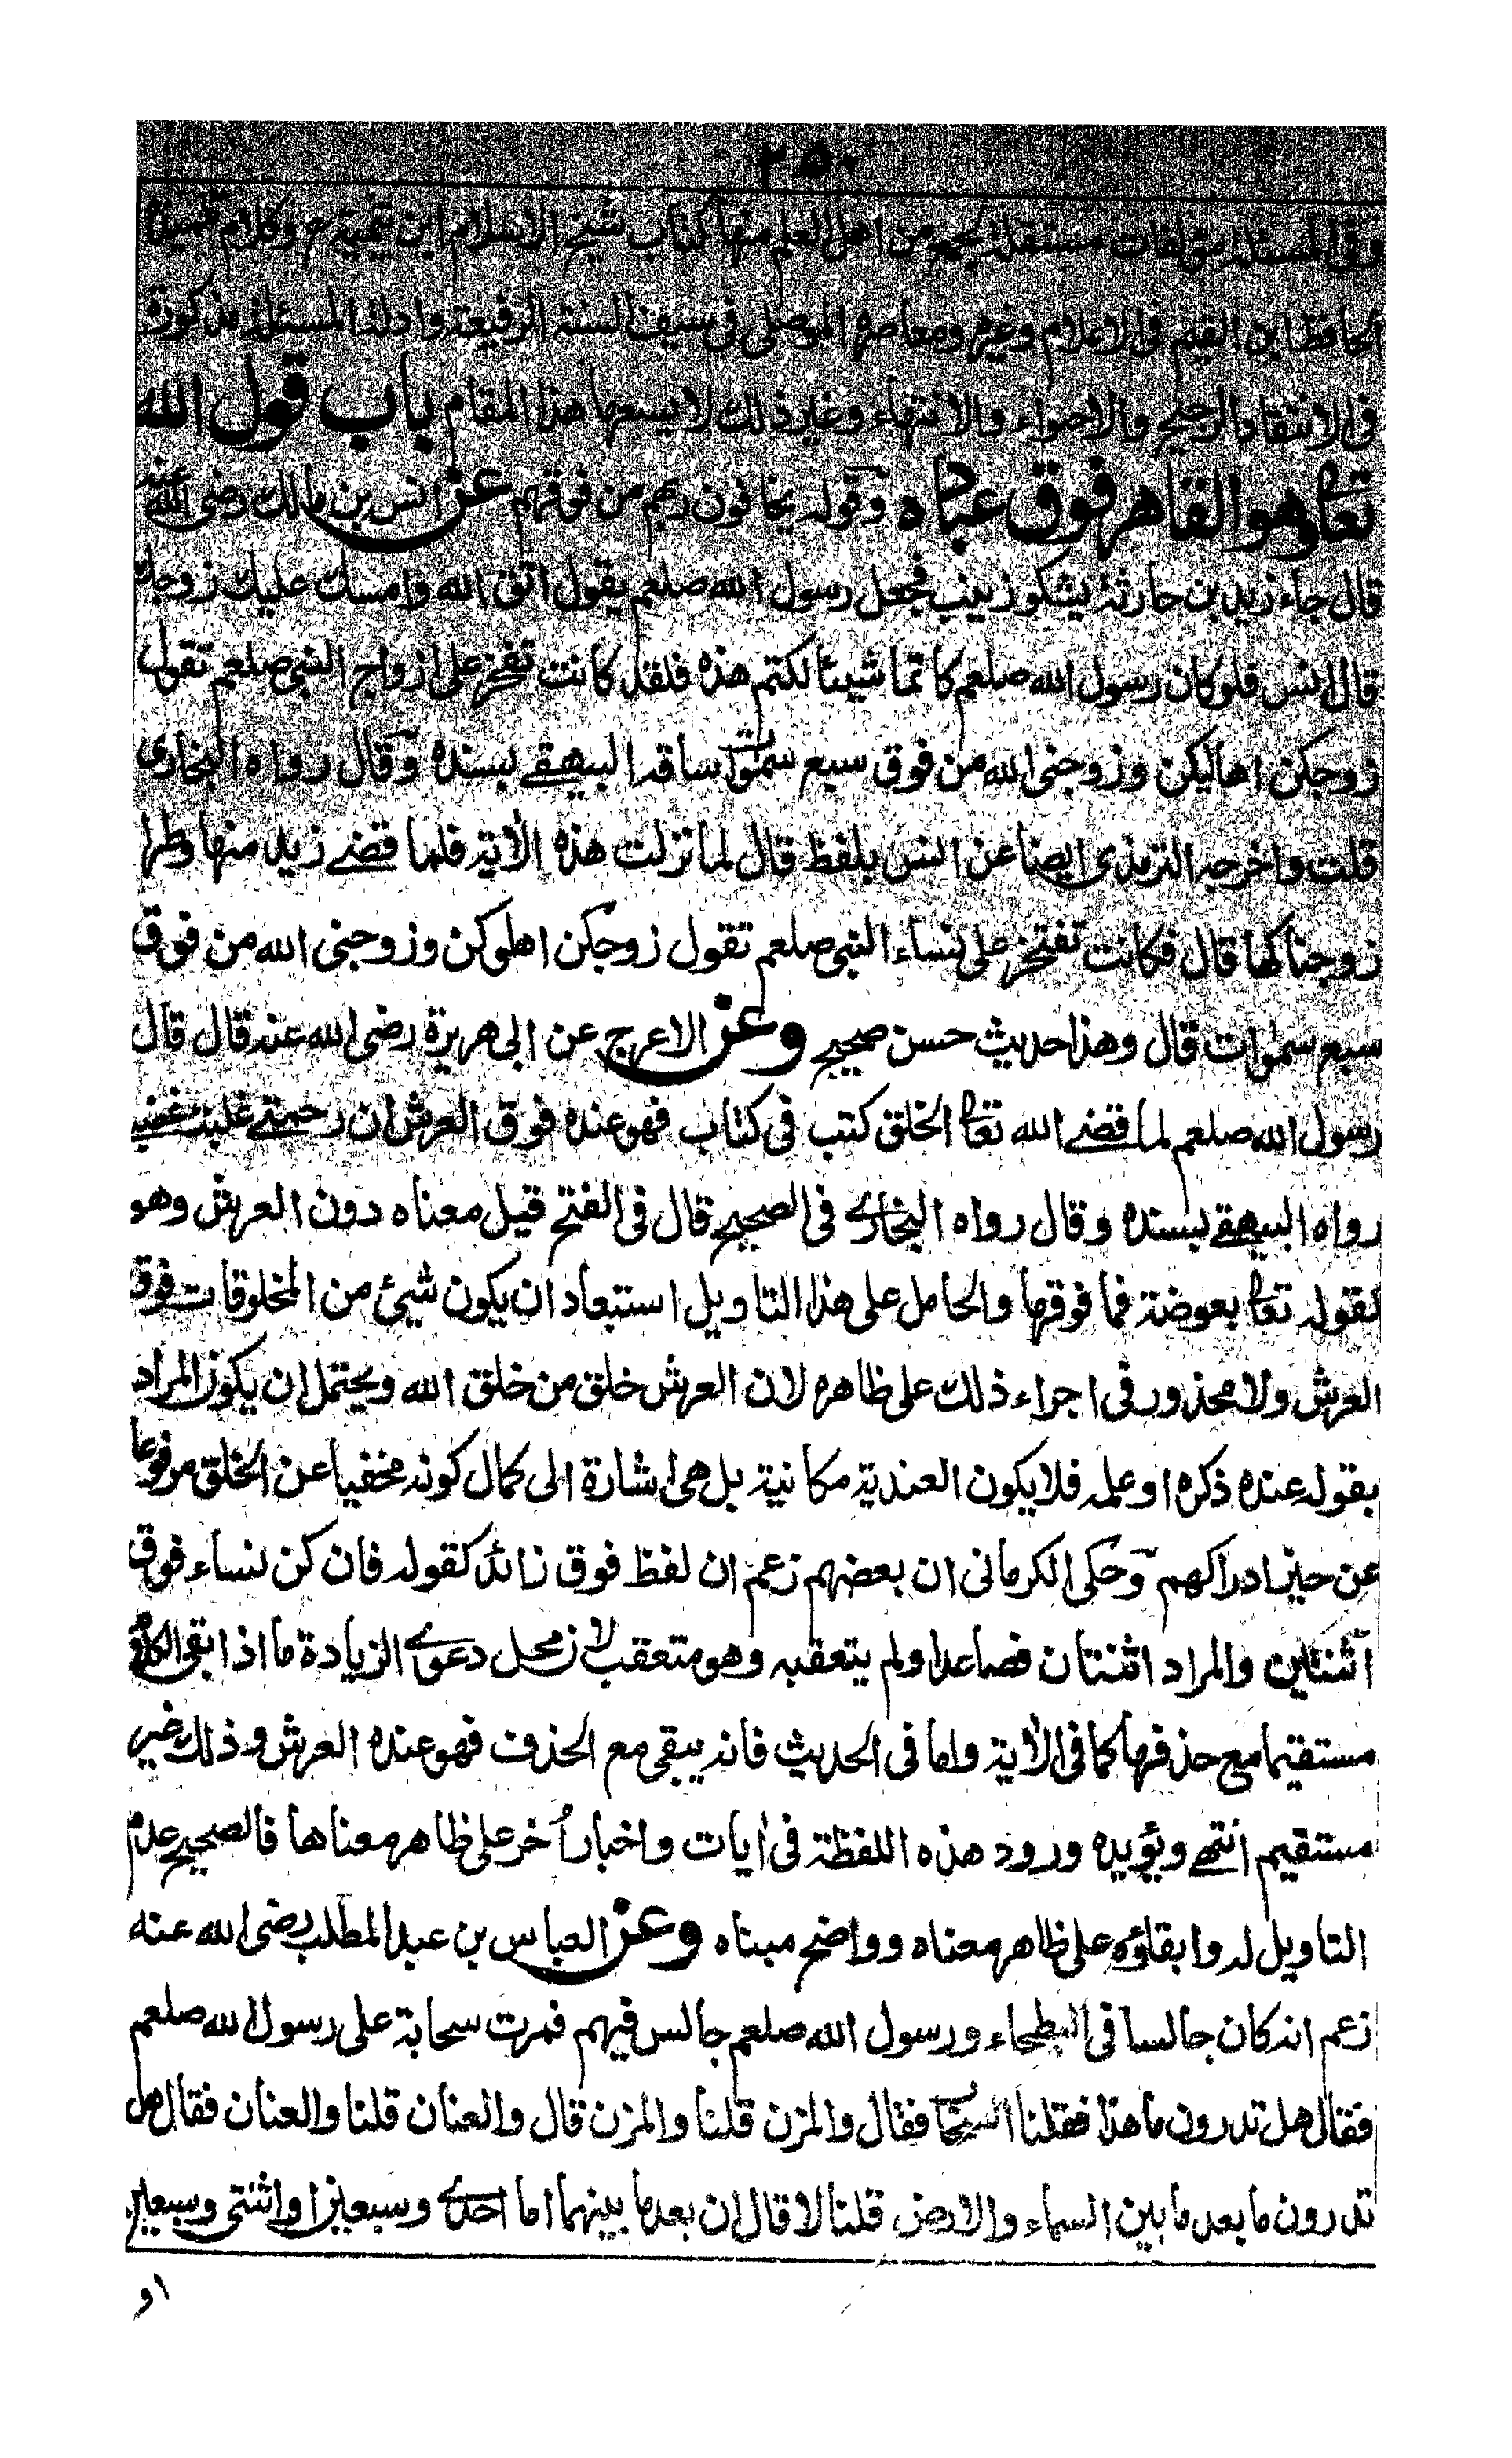 ٢٥٠
وفي المسئلة مؤلفات مستقلة لجمع من اهل العلم منها كتاب شيخ الاسلام ابن تيمية رح وكلام تلميذه
الحافظ ابن القيم في الاعلام وغيره ومعاصره الموصلي في سيف السنة الرفيعة وادلة المسئلة مذكورة
في الانتقاد الرجيح والاحتواء والانتهاء وغير ذلك لا يسعها هذا المقام باب قول الله
تعالى وهو القاهر فوق عباده وقوله يخافون ربهم من فوقهم عن انس بن مالك رضي الله عنه
قال جاء زيد بن حارثة يشكو زينب فجعل رسول الله صلعم يقول اتق الله وامسك عليك زوجك
قال انس فلو كان رسول الله صلعم كاتما شيئا لكتم هذه فلقد كانت تفخر على ازواج النبي صلعم تقول
زوجكن اهاليكن وزوجني الله من فوق سبع سموات ساقه البيهقي بسنده وقال رواه البخاري
قلت واخرجه الترمذي ايضا عن انس بلفظ قال لما نزلت هذه الآية فلما قضے زيد منها وطرا
زوجناكها قال فكانت تفتخر على نساء النبي صلعم تقول زوجكن اهلوكن وزوجني الله من فوق
سبع سموات قال وهذا حديث حسن صحيح وعن الاعرج عن ابي هريرة رضي الله عنه قال قال
رسول الله صلعم لما قضے الله تعالى الخلق كتب في كتاب فهو عنده فوق العرش ان رحمتے غلبت غضبي
رواه البيهقے بسنده وقال رواه البخارے في الصحيح قال في الفتح قيل معناه دون العرش وهو
كقوله تعالى بعوضة فما فوقها والحامل على هذا التاويل استبعاد ان يكون شيئ من المخلوقات فوق
العرش ولا محذور في اجراء ذلك على ظاهره لان العرش خلق من خلق الله ويحتمل ان يكون المراد
بقوله عنده ذكره او علمه فلا يكون العندية مكانية بل هي اشارة الى كمال كونه مخفيا عن الخلق مرفوعا
عن حيز ادراكهم وحكى الكرماني ان بعضهم زعم ان لفظ فوق زائد كقوله فان كن نساء فوق
اثنتين والمراد اثنتان فصاعدا ولم يتعقبه وهو متعقب لان محل دعوے الزيادة ما اذا بقي الكلام
مستقيما مع حذفها كما في الآية واما في الحديث فانه يبقى مع الحذف فهو عنده العرش وذلك غير
مستقيم انتهے ويؤيده ورود هذه اللفظة في ايات واخبار أخر على ظاهر معناها فالصحيح عدم
التاويل له وابقاؤه على ظاهر معناه وواضح مبناه وعن العباس بن عبد المطلب رضي الله عنه
زعم انه كان جالسا في البطحاء ورسول الله صلعم جالس فيهم فمرت سحابة على رسول الله صلعم
فقال هل تدرون ما هذا فقلنا السحاب فقال والمزن قلنا والمزن قال والعنان قلنا والعنان فقال هل
تدرون ما بعد ما بين السماء والارض قلنا لا قال ان بعد ما بينهما اما احدے وسبعين او اثنتي وسبعين
او